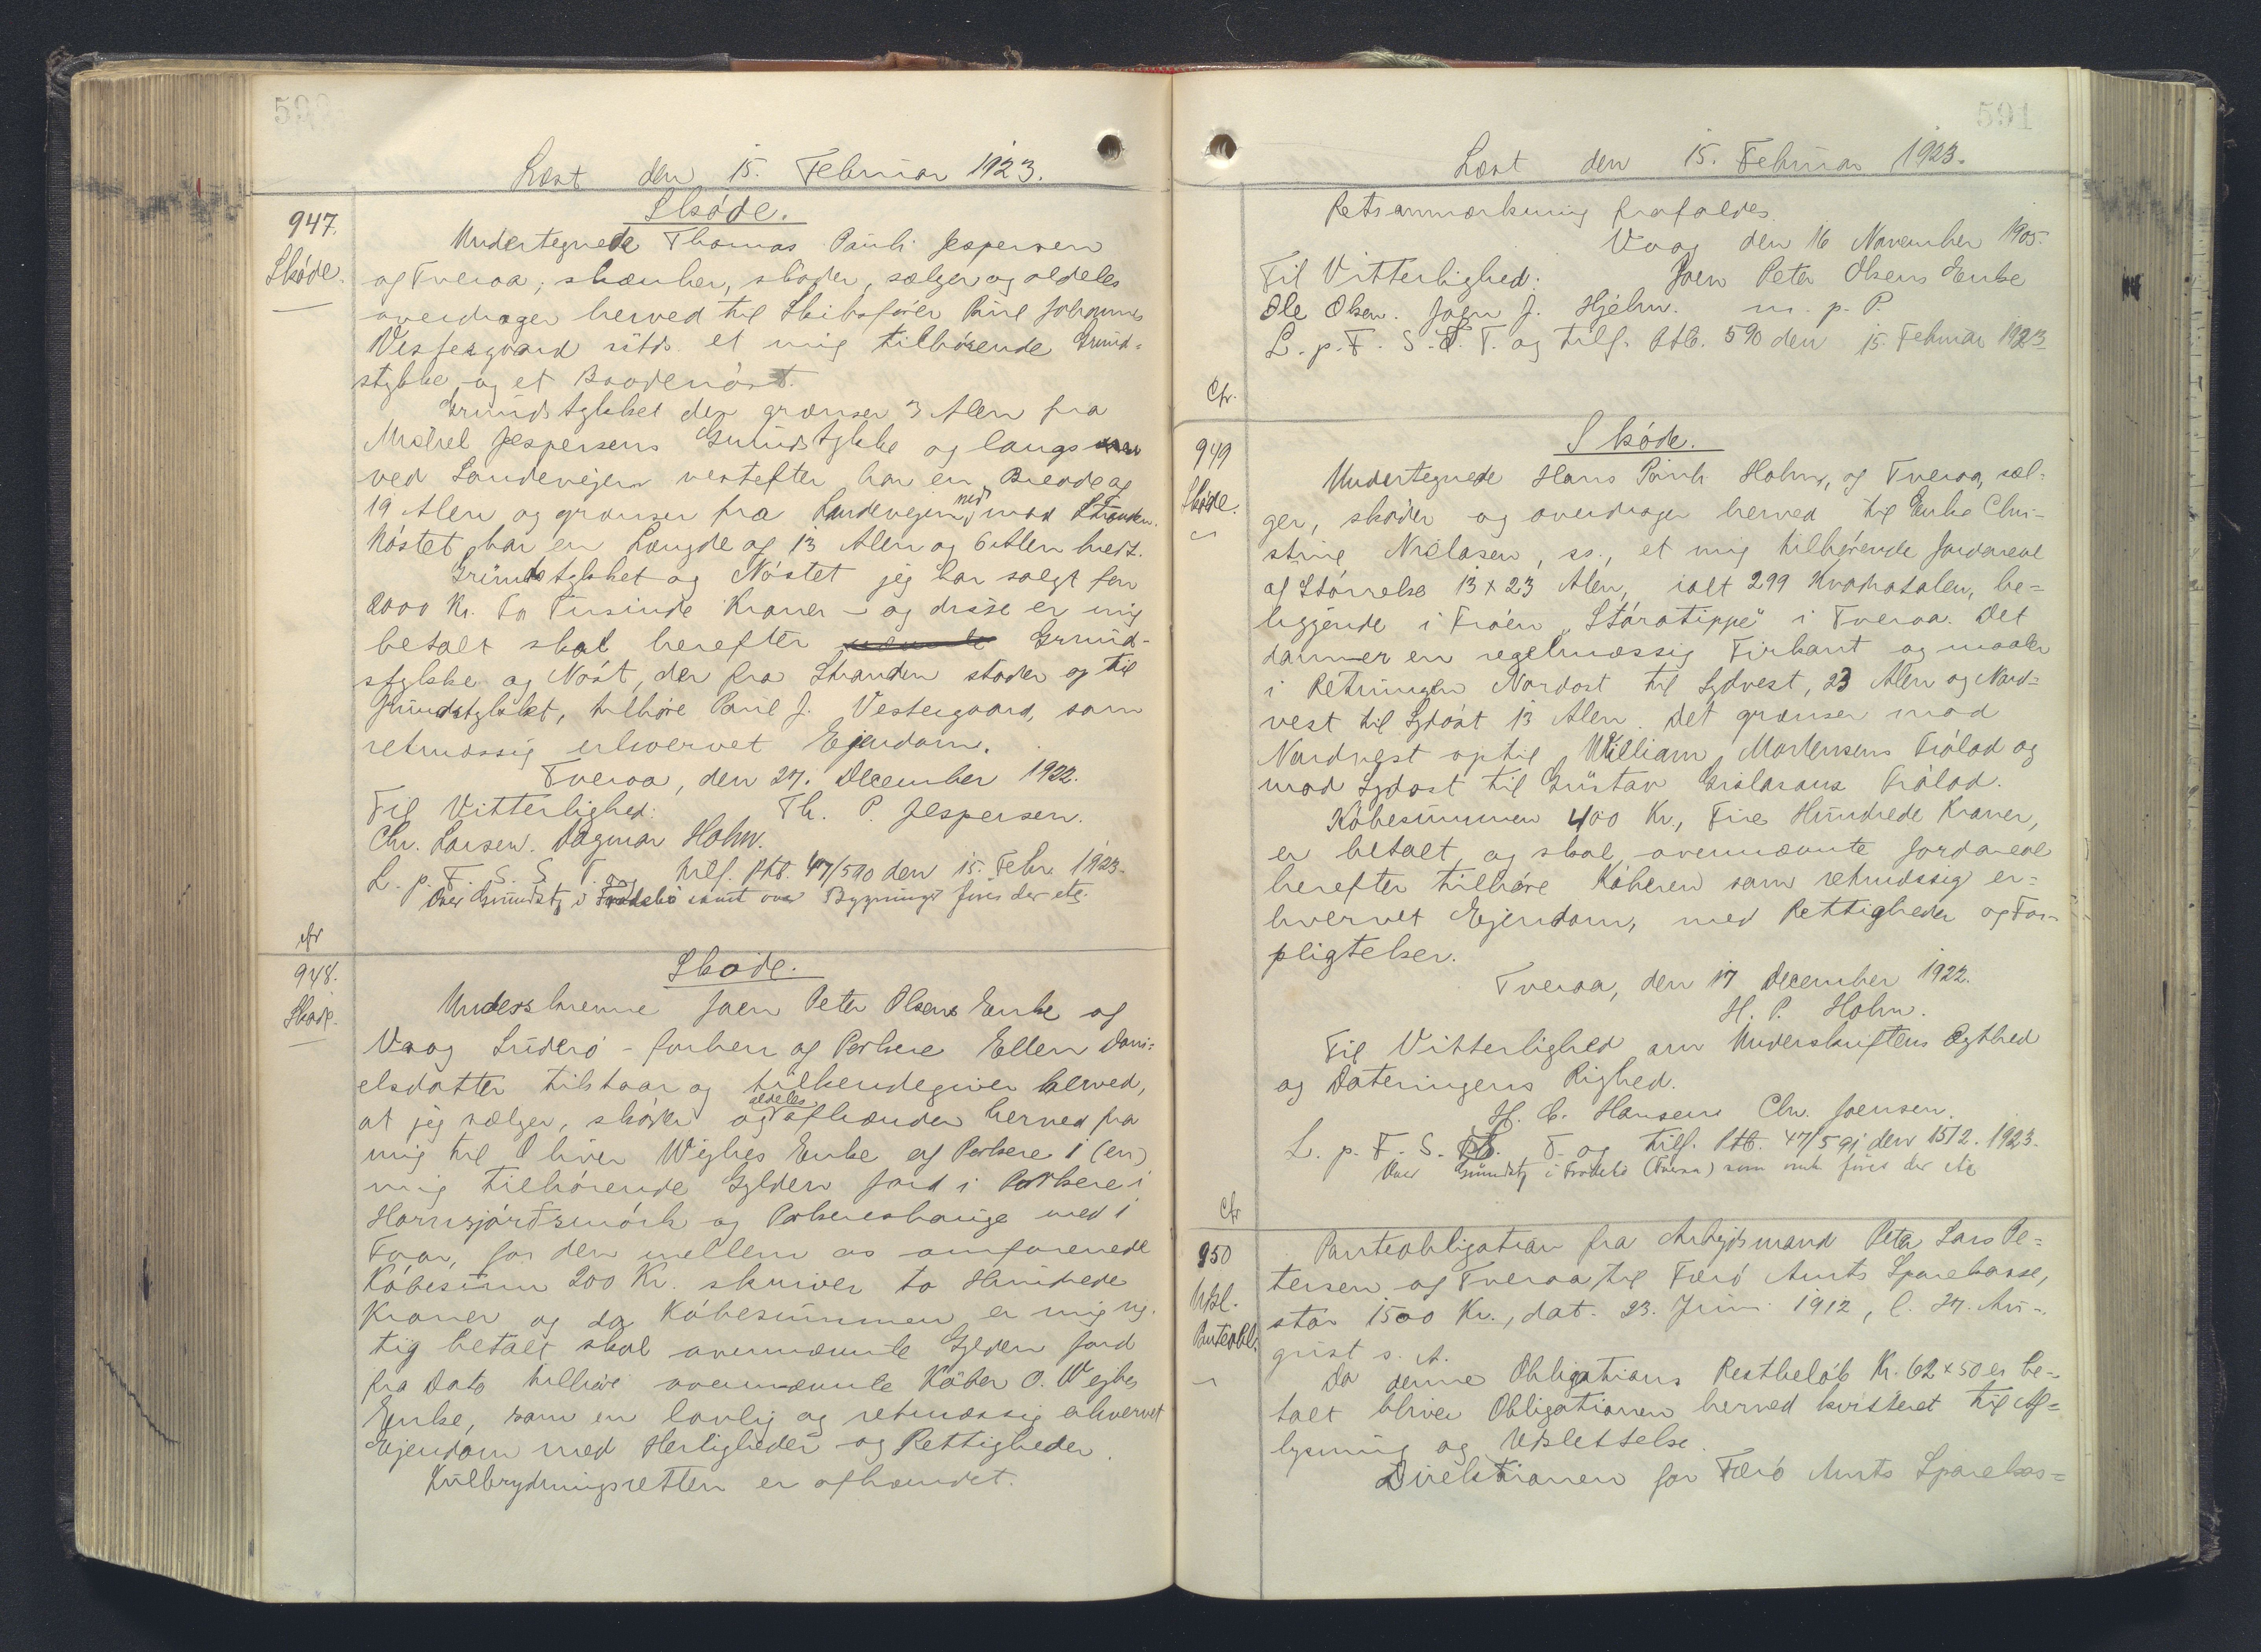 590
Læst den 15. Februar 1923.
947.
Skøde.
Skøde.
Undertegnede Thomas Pauli Jespersen
af Tveraa, skænker, skøder, sælger og aldeles
overdrager herved til Skibsfører Poul Johannes
Vestergaard sstds. et mig tilhørende Grund-
stykke og et Baadenøst.
Grundstykket der grænser 3 Alen fra
Mickel Jespersens Grundstykke og langs
ved Landevejen vestefter har en Bredde af
19 Alen og grænser fra Landevejen ned mod Stranden.
Nøstet har en Længde af 13 Alen og 6 Alen bredt.
Grundstykket og Nøstet jeg har solgt for
2000 Kr. To Tusinde Kroner - og disse er mig
betalt skal herefter Grund-
stykke og Nøst, der fra Stranden støder op til
Grundstykket, tilhøre Poul J. Vestergaard, som
retmæssig erhvervet Ejendom.
Tveraa, den 27. December 1922.
Til Vitterlighed: Th. P. Jespersen.
Chr. Larsen. Dagmar Holm.
L. p. F. S. S. T. og tilf. Ptb. 47/590 den 15. Febr. 1923.
Over Grundst. i Frodebø samt over Bygninger fines der etc.
cfr
948.
Skøde.
Skøde.
Underskrevne Joen Peter Olsens Enke af
Vaag Suderø - forhen af Porkere Ellen Dani-
elsdatter tilstaar og tilkendegiver herved,
at jeg sælger, skøder og aldeles afhænder herved fra
mig til Oliver Wejhes Enke af Porkere 1 (en)
mig tilhørende Gylden Jord i Porkere i
Hornsjórdsmørk og Porkereshauge med i
Faar, for den mellem os omforenede
Købesum 200 Kr. skriver to Hundrede
Kroner og da Købesummen er mig rig-
tig betalt skal ovennævnte Gylden Jord
fra Dato tilhøre ovennævnte Køber O. Wejhes
Enke, som en lovlig og retmæssig erhvervet
Ejendom med Herligheder og Rettigheder.
Kulbrydningsretten er afhændet.
591
Læst den 15. Februar 1923.
Retsanmærkning frafaldes.
Vaag den 16 November 1905.
Til Vitterlighed: Joen Peter Olsens Enke
Ole Olsen. Joen J. Hjelm. m. p. P.
L. p. F. S. S. T. og tilf. Ptb. 590 den 15. Februar 1923
Cfr.
949
Skøde.
Skøde.
Undertegnede Hans Pauli Holm, af Tveraa, sæl-
ger, skøder og overdrager herved til Enke Chri-
stine Nielasen, ss., et mig tilhørende Jordareal
af Størrelse 13 x 23 Alen, ialt 299 Kvadratalen, be-
liggende i Trøen "Stóratippe" i Tveraa. Det
danner en regelmæssig Firkant og maaler
i Retningen Nordost til Sydvest, 23 Alen og Nord-
vest til Sydøst 13 Alen. Det grænser mod
Nordvest optil William Mortensens Trølod og
mod Sydost til Gustav Gislasons Trølod.
Købesummen 400 Kr., Fire Hundrede Kroner,
er betalt, og skal ovennævnte Jordareal
herefter tilhøre Køberen som retmæssig er-
hvervet Ejendom, med Rettigheder og For-
pligtelser.
Tveraa, den 17 December 1922.
H. P. Holm.
Til Vitterlighed om Underskriftens Ægthed
og Dateringens Righed.
H. C. Hansen Chr. Joensen.
L. p. F. S. S. T. og tilf. Ptb. 47/591 den 15/2. 1923.
Over Grundst. i Frodebø (Tveraa) som intet fines der etc
Cfr
950
Udsl.
Panteobl.
Panteobligation fra Arbejdsmand Peter Lars Pe-
tersen af Tveraa, til Færø Amts Sparekasse,
stor 1500 Kr., dat. 23. Juni 1912, l. 27. Au-
gust s. A.
Da denne Obligations Restbeløb Kr. 62 x 50 er be-
talt bliver Obligationen herved kvitteret til Af-
lysning og Udslettelse.
Direktionen for Færø Amts Sparekas-